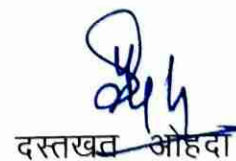 दस्तखत ओहदा